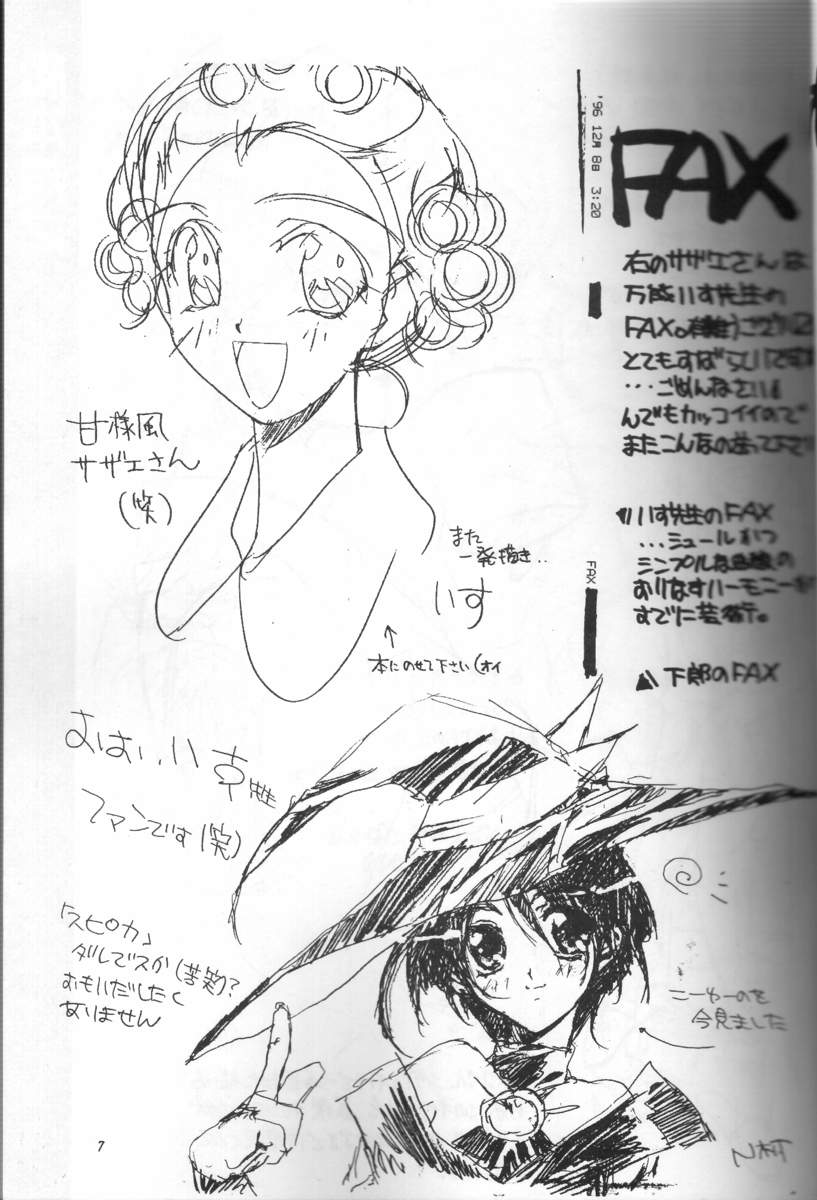 '96 12月 8日 3:20
FAX
右のサザエさんは
FAX
とてもすばらしいです
...ごめんなさい。
んでもカッコイイので
いす先生のFAX
...シュールかつ
シンプルな
おりなすハーモニーが
すでに芸術。
下郎のFAX
FAX
甘様風
サザエさん
(笑)
また
一発描き..
いす
↑
本にのせて下さい(オイ
先生
ファンです(笑)
「スピカ」
ダレでスか(苦笑)?
おもいだしたく
ありません
こーゆーのを
今見ました
7